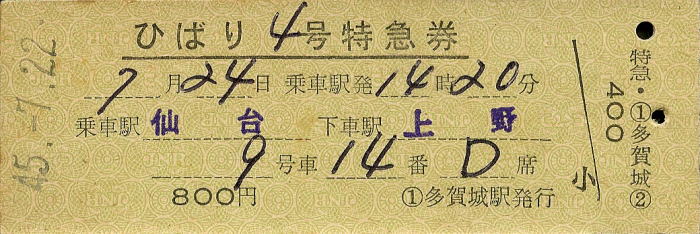 ひばり 4号特急券
7月24日 乗車駅発14時20分
乗車駅 仙台 下車駅 上野
9号車 14番 D席
800円 ①多賀城駅発行
45.-7.22
小
特急・①多賀城②
400